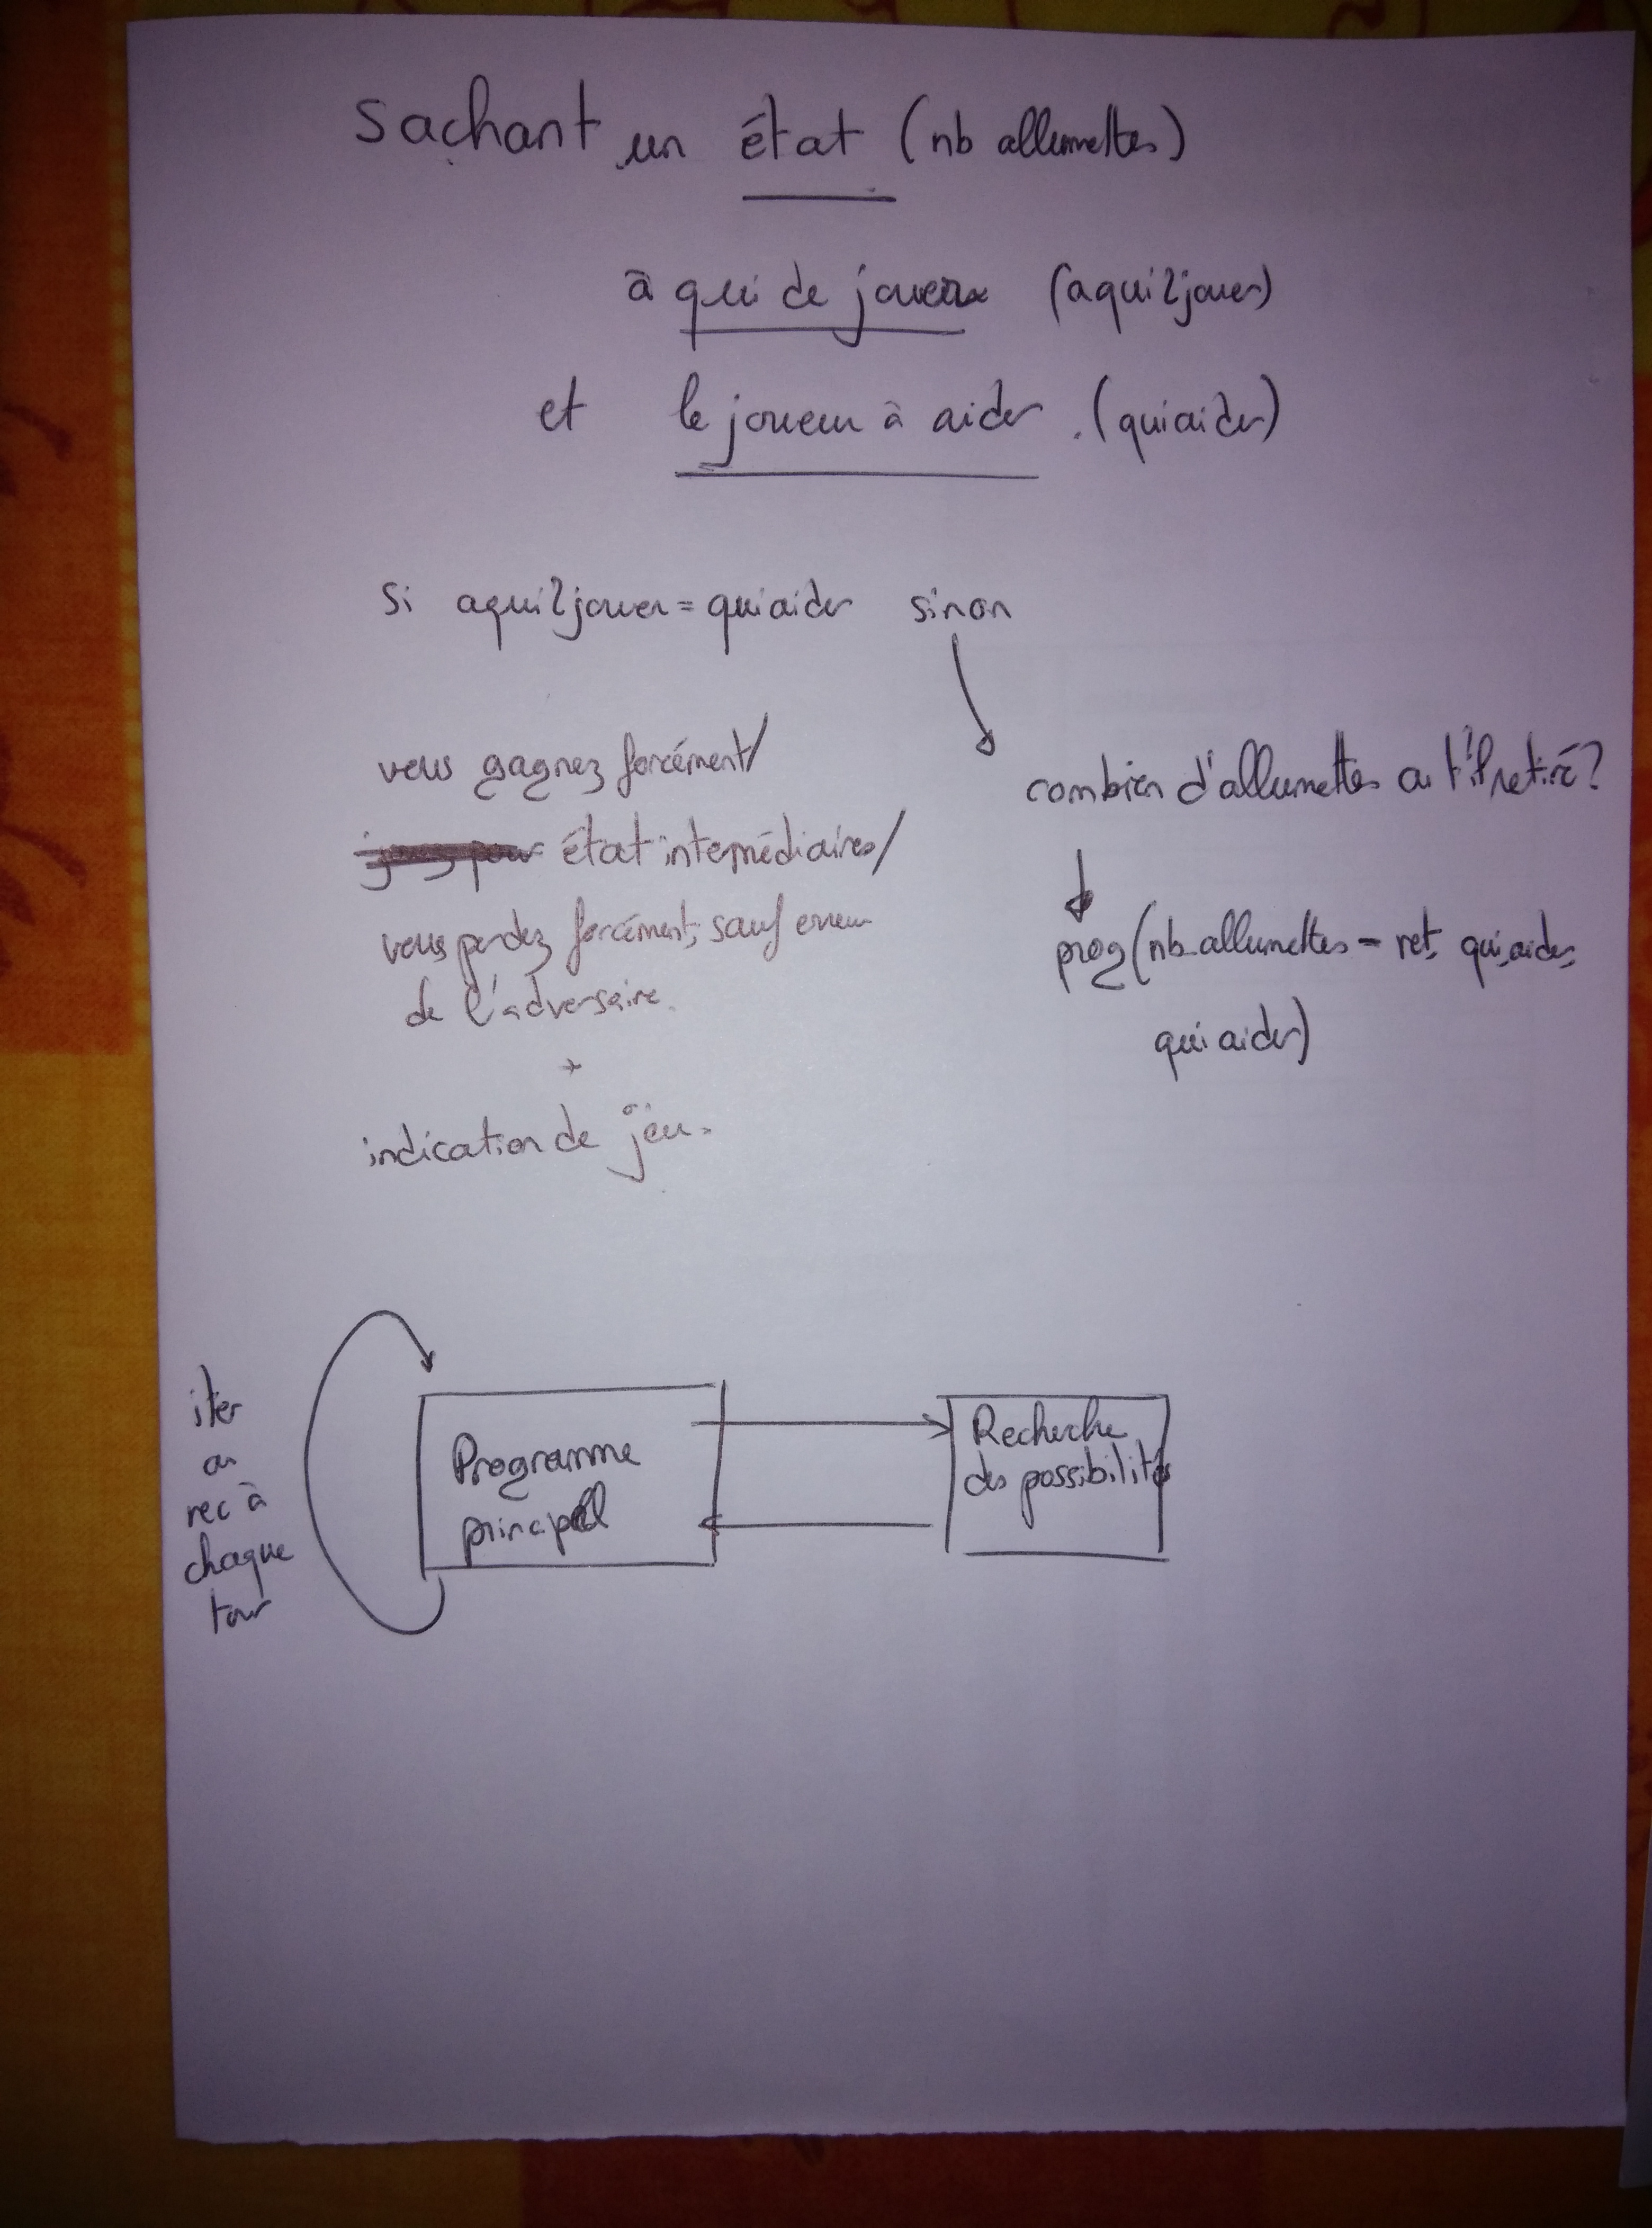 Sachant un état (nb allumettes)
à qui de jouer (aqui2jouer)
et le joueur à aider. (quiaider)
si aqui2jouer = quiaider sinon
vous gagnez forcément/
état intermédiaires/
vous perdez forcément, sauf erreur
de l'adversaire.
+
indication de jeu.
combien d'allumettes a t'il retiré?
prog(nb allumettes - ret, quiaider,
quiaider)
iter
ou
rec à
chaque
tour
Programme
principal
Recherche
des possibilités